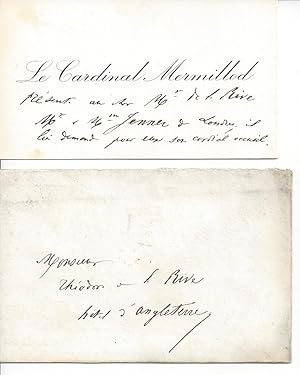 Le Cardinal Mermillod
Présente au cher Mr de la Rive
Mr & Mme Jenner de Londres, il
lui demande pour eux son cordial accueil.
Monsieur
Théodore de la Rive
hotel d'angleterre